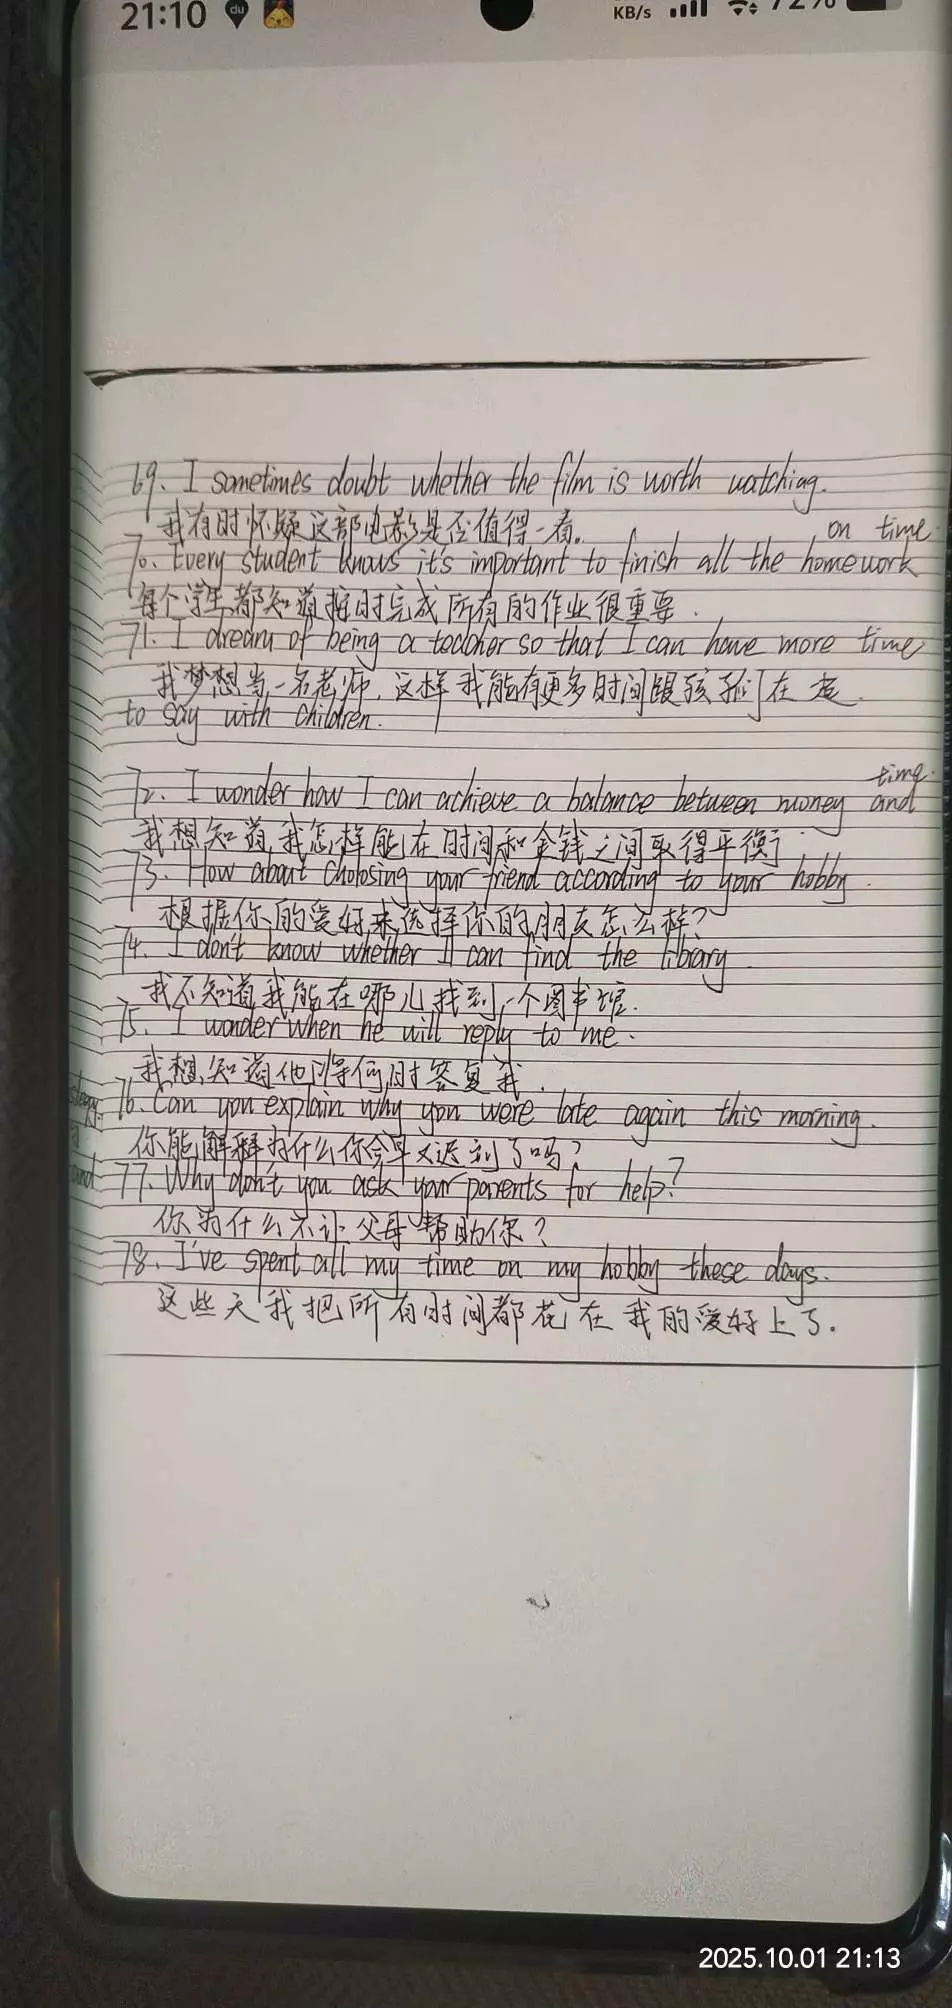 21:10
du
KB/s
72%
69. I sometimes doubt whether the film is worth watching.
我有时怀疑这部电影是否值得一看。
on time
70. Every student knows it's important to finish all the homework
每个学生都知道按时完成所有的作业很重要.
71. I dream of being a teacher so that I can have more time
我梦想当一名老师,这样我能有更多时间跟孩子们在一起.
to say with children.
time.
72. I wonder how I can achieve a balance between money and
我想知道我怎样能在时间和金钱之间取得平衡
73. How about choosing your friend according to your hobby.
根据你的爱好来选择你的朋友怎么样?
74. I don't know whether I can find the library.
我不知道我能在哪儿找到一个图书馆.
75. I wonder when he will reply to me.
我想知道他将何时答复我.
76. Can you explain why you were late again this morning.
你能解释为什么你今早又迟到了吗?
77. Why don't you ask your parents for help?
你为什么不让父母帮助你?
78. I've spent all my time on my hobby these days.
这些天我把所有时间都花在我的爱好上了.
2025.10.01 21:13